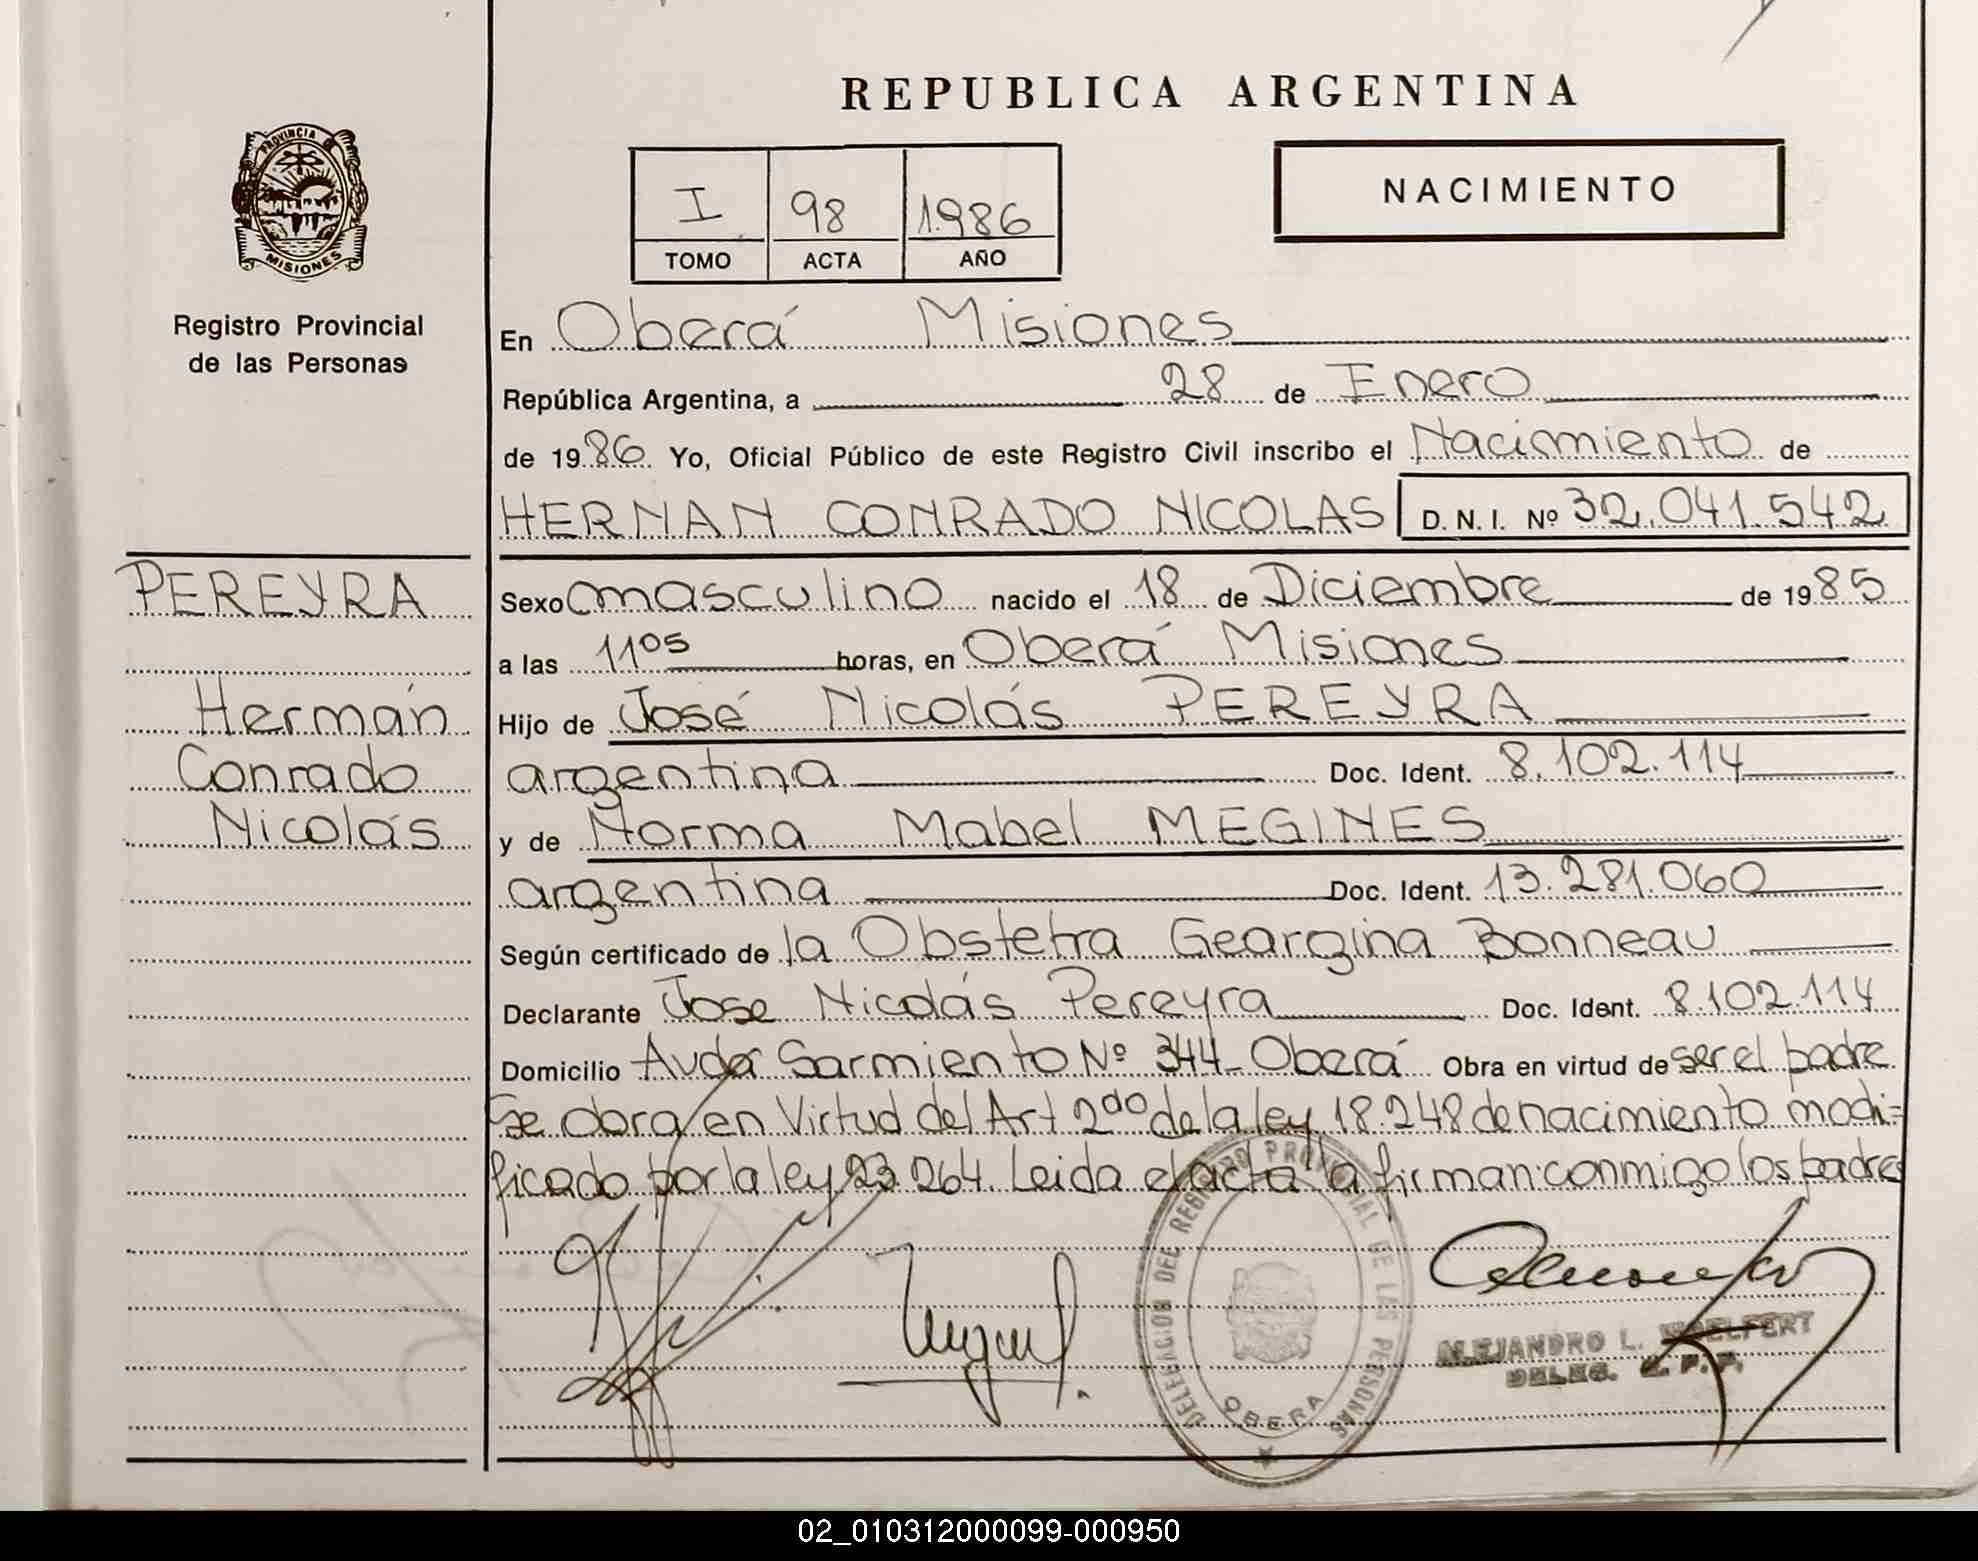 REPUBLICA ARGENTINA
PROVINCIA DE MISIONES
Registro Provincial
de las Personas
I 98 1.986
TOMO ACTA AÑO
NACIMIENTO
En Oberá Misiones
República Argentina, a 28 de Enero
de 1986 Yo, Oficial Público de este Registro Civil inscribo el Nacimiento de
HERNAN CONRADO NICOLAS D. N. I. Nº 32.041.542
PEREYRA
Hernán
Conrado
Nicolás
Sexo masculino nacido el 18 de Diciembre de 1985
a las 11 05 horas, en Oberá Misiones
Hijo de José Nicolás PEREYRA
argentina Doc. Ident. 8.102.114
y de Norma Mabel MEGINES
argentina Doc. Ident. 13.281.060
Según certificado de la Obstetra Georgina Bonneau
Declarante Jose Nicolás Pereyra Doc. Ident. 8.102.114
Domicilio Avda Sarmiento Nº 344 Oberá Obra en virtud de ser el padre
Se obra en Virtud del Art 2do de la ley 18.248 de nacimiento modi=
ficado por la ley 23.264. Leida el acta la firman conmigo los padres
DELEGACION DEL REGISTRO PROVINCIAL DE LAS PERSONAS
OBERA
ALEJANDRO L. WOELFERT
DELEG. R. P. P.
02_010312000099-000950